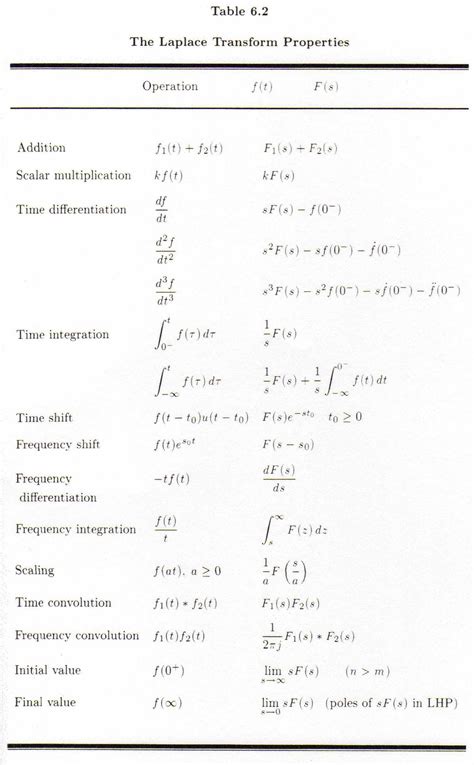 Table 6.2
The Laplace Transform Properties
Operation f(t) F(s)
Addition f₁(t) + f₂(t) F₁(s) + F₂(s)
Scalar multiplication kf(t) kF(s)
Time differentiation df/dt sF(s) − f(0⁻)
d²f/dt² s²F(s) − sf(0⁻) − ḟ(0⁻)
d³f/dt³ s³F(s) − s²f(0⁻) − sḟ(0⁻) − f̈(0⁻)
Time integration ∫₀₋ᵗ f(τ) dτ 1/s F(s)
∫₋∞ᵗ f(τ) dτ 1/s F(s) + 1/s ∫₋∞⁰⁻ f(t) dt
Time shift f(t − t₀)u(t − t₀) F(s)e^(−st₀) t₀ ≥ 0
Frequency shift f(t)e^(s₀t) F(s − s₀)
Frequency −tf(t) dF(s)/ds
differentiation
Frequency integration f(t)/t ∫ₛ^∞ F(z) dz
Scaling f(at), a ≥ 0 1/a F(s/a)
Time convolution f₁(t) * f₂(t) F₁(s)F₂(s)
Frequency convolution f₁(t)f₂(t) 1/2πj F₁(s) * F₂(s)
Initial value f(0⁺) lim s→∞ sF(s) (n > m)
Final value f(∞) lim s→0 sF(s) (poles of sF(s) in LHP)